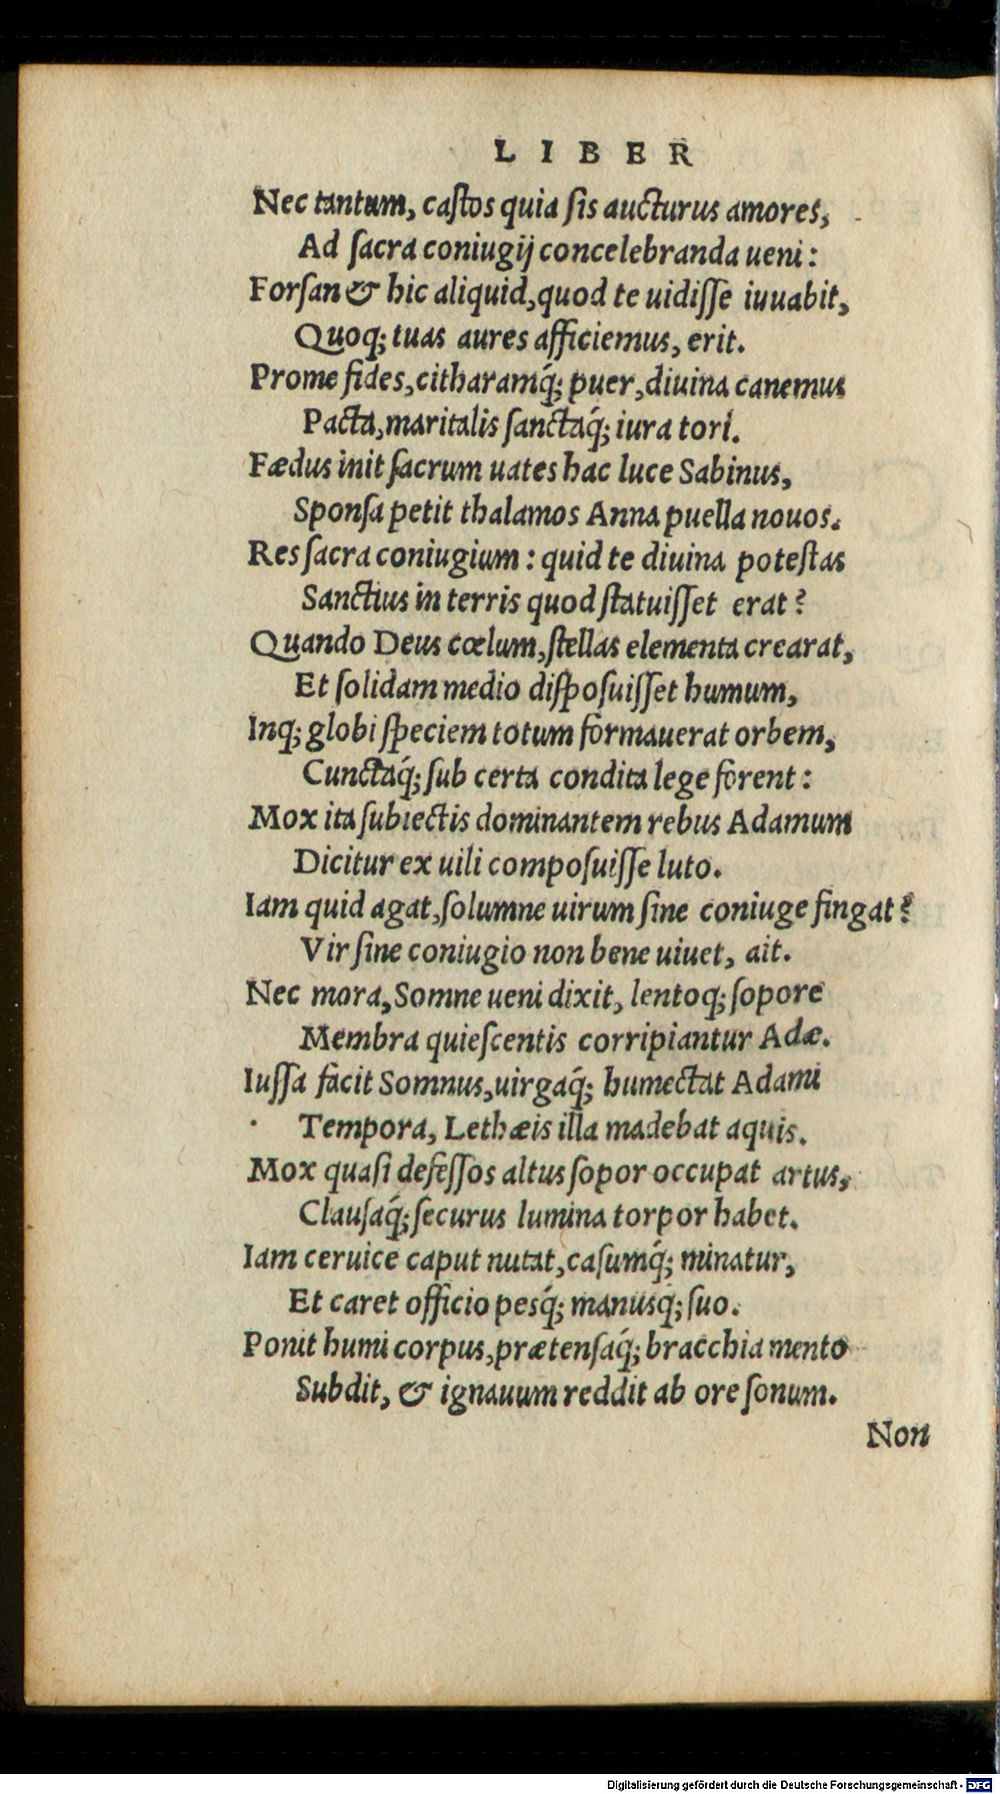 LIBER
Nec tantum, castos quia sis aucturus amores,
Ad sacra coniugij concelebranda ueni:
Forsan & hic aliquid, quod te uidisse iuuabit,
Quoq; tuas aures afficiemus, erit.
Prome fides, citharamq́; puer, diuina canemus
Pacta, maritalis sanctaq́; iura tori.
Fædus init sacrum uates hac luce Sabinus,
Sponsa petit thalamos Anna puella nouos.
Res sacra coniugium: quid te diuina potestas
Sanctius in terris quod statuisset erat?
Quando Deus cœlum, stellas elementa crearat,
Et solidam medio disposuisset humum,
Inq; globi speciem totum formauerat orbem,
Cunctaq́; sub certa condita lege forent:
Mox ita subiectis dominantem rebus Adamum
Dicitur ex uili composuisse luto.
Iam quid agat, solumne uirum sine coniuge fingat?
Vir sine coniugio non bene uiuet, ait.
Nec mora, Somne ueni dixit, lentoq; sopore
Membra quiescentis corripiantur Adæ.
Iussa facit Somnus, uirgaq́; humectat Adami
Tempora, Lethæis illa madebat aquis.
Mox quasi defessos altus sopor occupat artus,
Clausaq́; securus lumina torpor habet.
Iam ceruice caput nutat, casumq́; minatur,
Et caret officio pesq́; manusq; suo.
Ponit humi corpus, prætensaq́; bracchia mento
Subdit, & ignauum reddit ab ore sonum.
Non
Digitalisierung gefördert durch die Deutsche Forschungsgemeinschaft - DFG